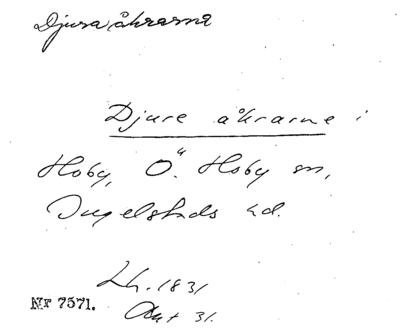 Djuraåkrarna
Djure åkrarne i
Hoby, Ö. Hoby sn,
Ingelstads hd.
Lh. 1831
Akt 31.
Nr 7571.